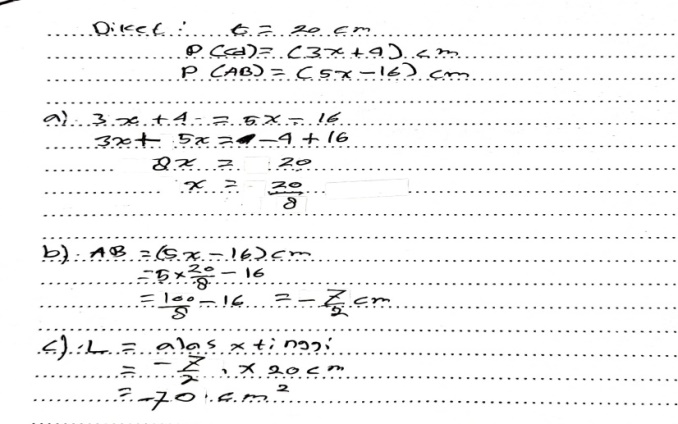 Diket : t = 20 cm
P (cd) = (3x+4) cm
P (AB) = (5x-16) cm
a) 3x + 4 = 5x - 16
3x + 5x = -4 + 16
8x = 20
x = 20/8
b) AB = (5x - 16) cm
= 5 x 20/8 - 16
= 100/8 - 16 = - 7/2 cm
c) L = alas x tinggi
= - 7/2 x 20 cm
= -70 cm²